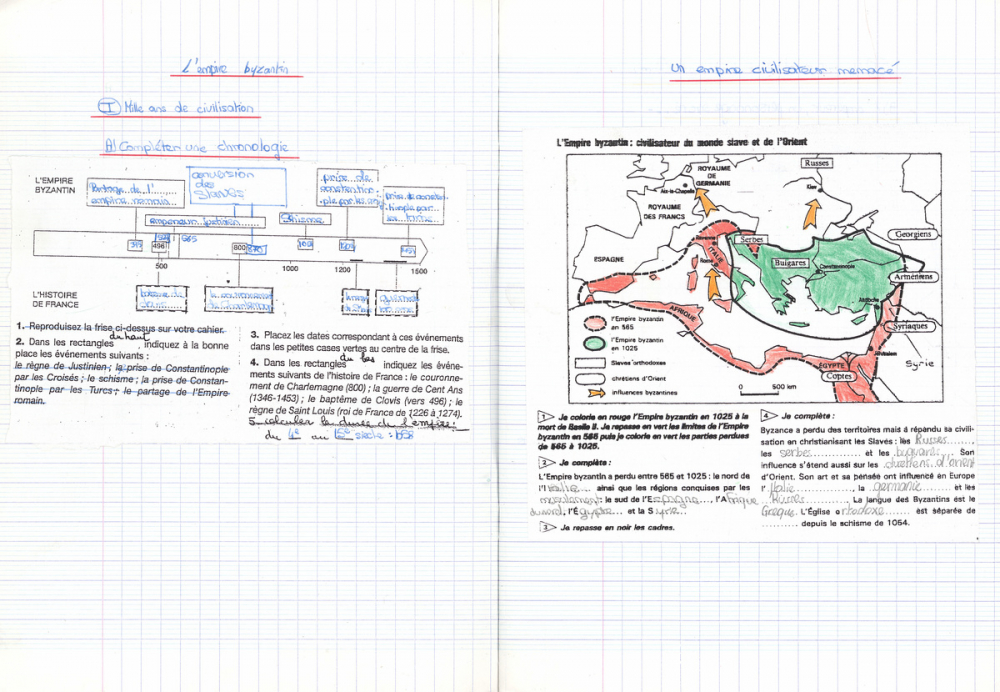 L'empire byzantin
I Mille ans de civilisation
A) Compléter une chronologie
L'EMPIRE
BYZANTIN
Partage de l'
empire romain
conversion
des
slaves
prise de
constantino-
ple par les
empereur Justinien
Schisme
496
565
800
500
1000
1200
1500
L'HISTOIRE
DE FRANCE
1. Reproduisez la frise ci-dessus sur votre cahier.
du haut
2. Dans les rectangles, indiquez à la bonne
place les événements suivants :
le règne de Justinien ; la prise de Constantinople
par les Croisés ; le schisme ; la prise de Constan-
tinople par les Turcs ; le partage de l'Empire
romain.
3. Placez les dates correspondant à ces événements
dans les petites cases vertes au centre de la frise.
du bas
4. Dans les rectangles indiquez les événe-
ments suivants de l'histoire de France : le couronne-
ment de Charlemagne (800) ; la guerre de Cent Ans
(1346-1453) ; le baptême de Clovis (vers 496) ; le
règne de Saint Louis (roi de France de 1226 à 1274).
5. calculer la durée de l'empire :
du 4e au 15e siècle : 1058
Un empire civilisateur menacé
L'Empire byzantin : civilisateur du monde slave et de l'Orient
ROYAUME
DE
GERMANIE
Aix-la-Chapelle
ROYAUME
DES FRANCS
Russes
Kiev
Georgiens
ESPAGNE
ITALIE
Rome
Serbes
Bulgares
Constantinople
Arméniens
Antioche
AFRIQUE
Syriaques
Syrie
EGYPTE
Coptes
l'Empire byzantin
en 565
l'Empire byzantin
en 1025
Slaves orthodoxes
chrétiens d'Orient
influences byzantines
0 500 km
1 Je colorie en rouge l'Empire byzantin en 1025 à la
mort de Basile II. Je repasse en vert les limites de l'Empire
byzantin en 565 puis je colorie en vert les parties perdues
de 565 à 1025.
2 Je complète :
L'Empire byzantin a perdu entre 565 et 1025 : le nord de
l'Italie ainsi que les régions conquises par les
musulmans : le sud de l'Espagne, l'Afrique
du nord, l'Égypte et la Syrie.
3 Je repasse en noir les cadres.
4 Je complète :
Byzance a perdu des territoires mais a répandu sa civili-
sation en christianisant les Slaves : les Russes,
les serbes et les bulgares. Son
influence s'étend aussi sur les chrétiens d'orient
d'Orient. Son art et sa pensée ont influencé en Europe
l'Italie, la germanie et les
Russes. La langue des Byzantins est le
Grecque. L'Église orthodoxe est séparée de
depuis le schisme de 1054.